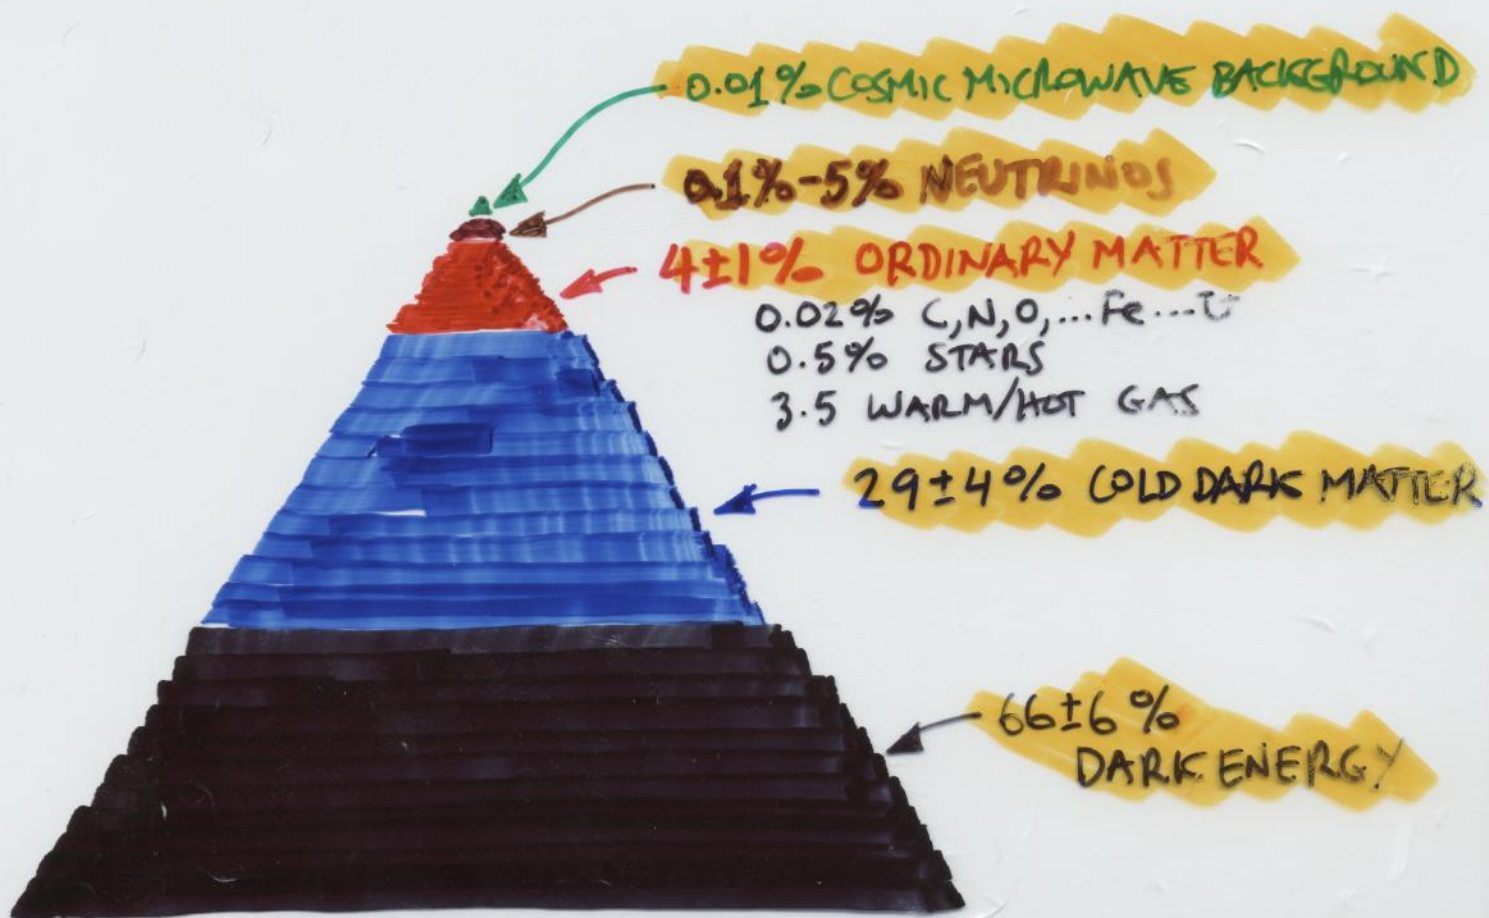 0.01% COSMIC MICROWAVE BACKGROUND
0.1%-5% NEUTRINOS
4±1% ORDINARY MATTER
0.02% C,N,O,...Fe...U
0.5% STARS
3.5 WARM/HOT GAS
29±4% COLD DARK MATTER
66±6%
DARK ENERGY